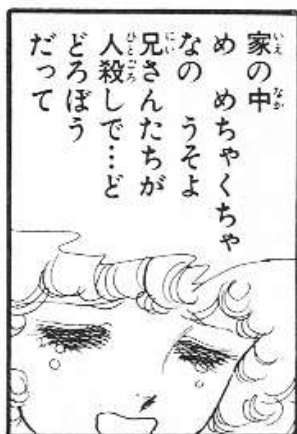 家の中
め　めちゃくちゃ
なの　うそよ
兄さんたちが
人殺しで…ど
どろぼう
だって